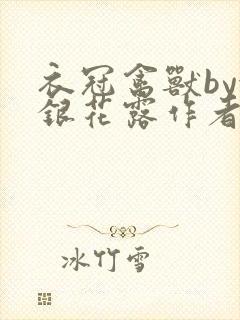 衣冠禽獸by
銀花露作者
冰竹雪